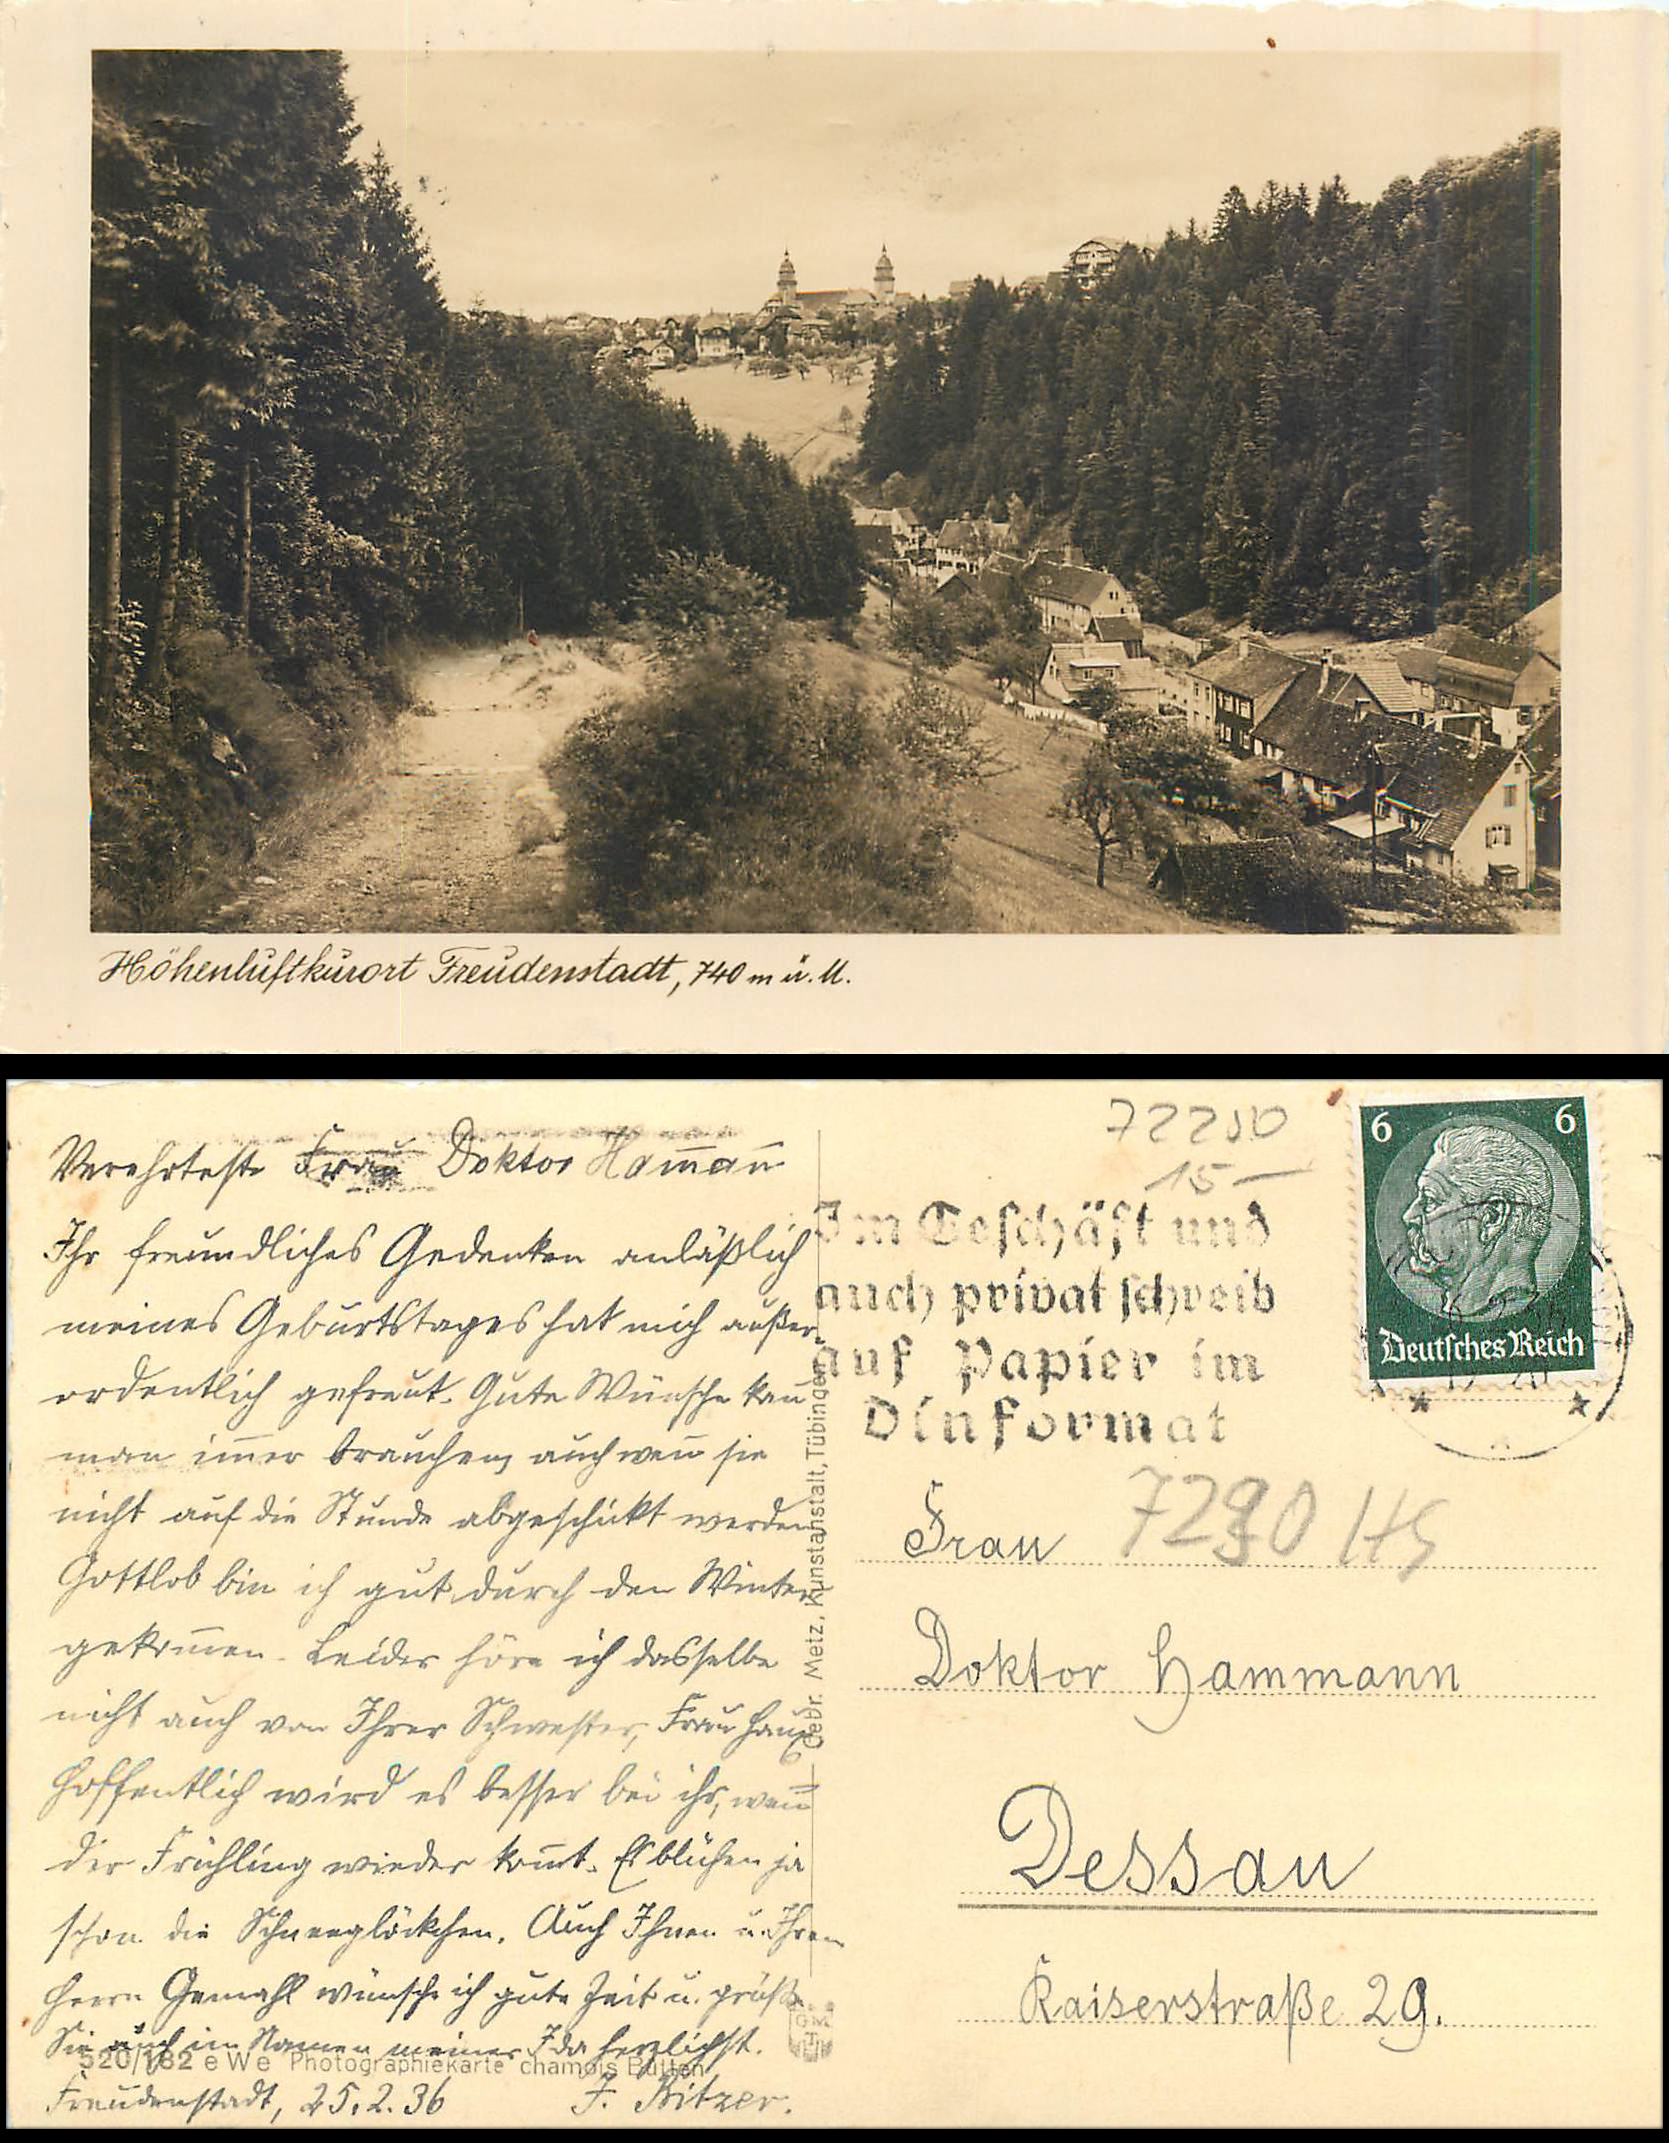 Höhenluftkurort Freudenstadt, 740 m ü. M.
Verehrteste Frau Doktor Hamann
Ihr freundliches Gedenken anläßlich
meines Geburtstages hat mich außer
ordentlich gefreut. Gute Wünsche kan
man imer brauchen, auch wen sie
nicht auf die Stunde abgeschickt werden.
Gottlob bin ich gut durch den Winter
gekomen. Leider höre ich dasselbe
nicht auch von Ihrer Schwester, Frau
Hoffentlich wird es besser bei ihr, wen
der Frühling wieder komt. Es blühen ja
schon die Schneeglöckchen. Auch Ihnen u. Ihrem
Herrn Gemahl wünsche ich gute Zeit u. grüße
Sie auch im Namen meiner Ida herzlichst.
Freudenstadt, 25.2.36 F. Bitzer.
520/182 eWe Photographiekarte chamois Bütten
Gebr. Metz, Kunstanstalt, Tübingen
72250
15 —
Im Geschäft und
auch privat schreib
auf Papier im
Dinformat
6 6
Deutsches Reich
Frau
7290 HS
Doktor Hammann
Dessau
Kaiserstraße 29.